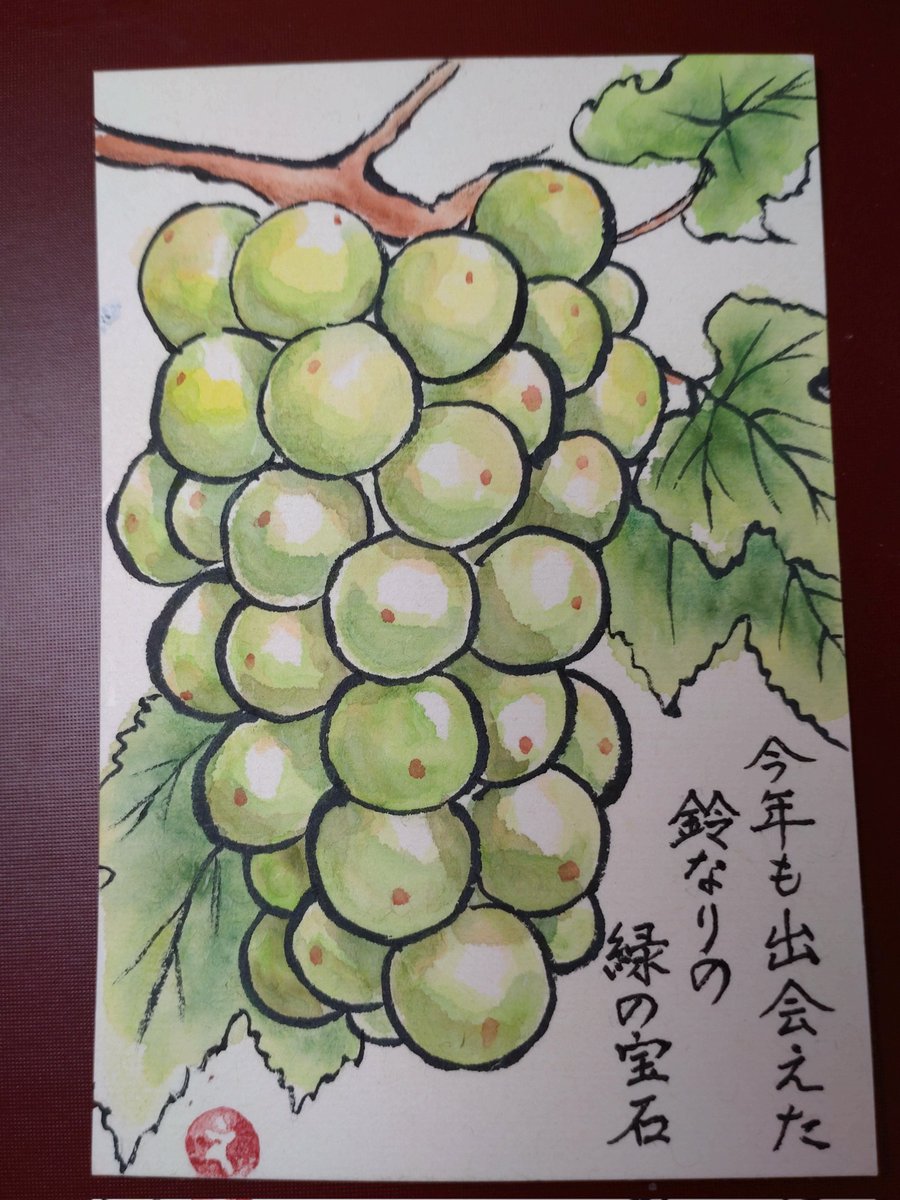 今年も出会えた
鈴なりの
緑の宝石